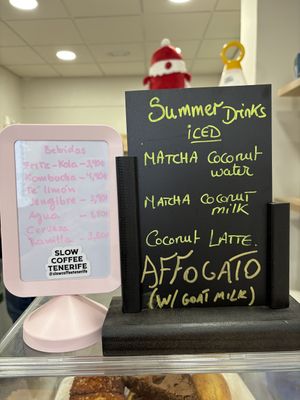 Bebidas
Fritz-Kola
Kombucha
Té limón
Jengibre
Agua
Cerveza
Vainilla
SLOW
COFFEE
TENERIFE
@slowcoffeetenerife
Summer Drinks
iCED
MATCHA Coconut
water
MATCHA Coconut
milk
Coconut LATTE.
AFFOGATO
(w/ GOAT MILK)